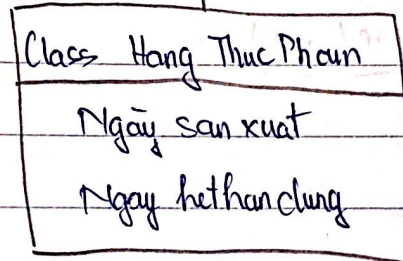 Class Hang Thuc Pham
Ngày san xuat
Ngay hethandung